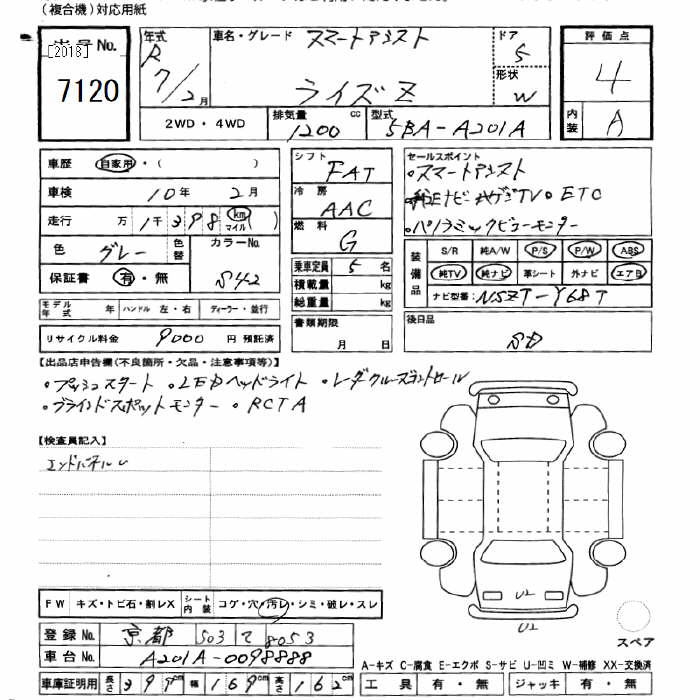 (複合機)対応用紙
出品 No. [2018] 7120
年式 R 7/2 月
車名・グレード スマートアシスト ライズ Z
ドア 5
形状 W
評価点 4
内装 A
2WD・4WD
排気量 1200 cc
型式 5BA-A201A
車歴 自家用・( )
車検 10年 2月
走行 万 1千 3 9 8 km マイル ( )
色 グレー 色替 カラーNo. S42
保証書 有・無
モデル年式 年 ハンドル 左・右 ディーラー・並行
リサイクル料金 9000 円 預託済
シフト FAT
冷房 AAC
燃料 G
乗車定員 5 名
積載量 kg
総重量 kg
書類期限 月 日
セールスポイント
・スマートアシスト
・純正ナビ TV・ETC
・パノラミックビューモニター
装備品 S/R 純A/W P/S P/W ABS
純TV 純ナビ 革シート 外ナビ エアB
ナビ型番: NSZT-Y68T
後日品 SD
【出品店申告欄(不良箇所・欠品・注意事項等)】
・プッシュスタート ・LEDヘッドライト ・レーダクルーズコントロール
・ブラインドスポットモニター ・RCTA
【検査員記入】
エンドパネルU
U2
U2
スペア
FW キズ・トビ石・割レX シート内装 コゲ・穴・汚レ・シミ・破レ・スレ
登録No. 京都 503 て 8053
車台No. A201A-0098888
車庫証明用 長さ 399cm 幅 169cm 高さ 162cm
A-キズ C-腐食 E-エクボ S-サビ U-凹ミ W-補修 XX-交換済
工具 有・無 ジャッキ 有・無